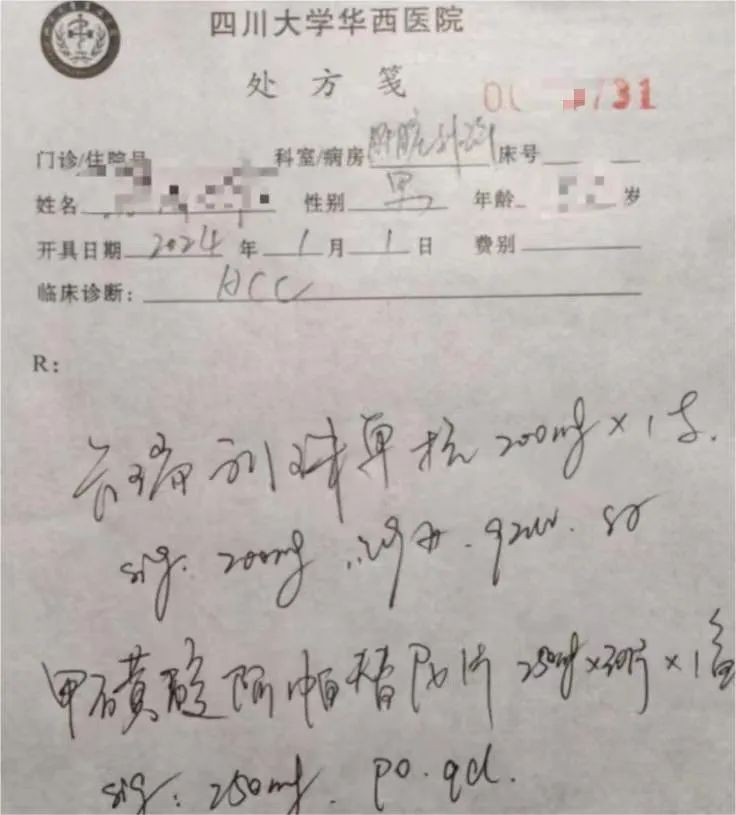 四川大学华西医院
处方笺
31
门诊/住院号 科室/病房 肝脏外科 床号
姓名 性别 男 年龄 岁
开具日期 2024 年 1 月 1 日 费别
临床诊断: HCC
R:
卡瑞利珠单抗 200mg × 1支.
sig. 200mg q2w.
甲磺酸阿帕替尼片 250mg×30片 × 1盒
sig: 250mg. po. qd.